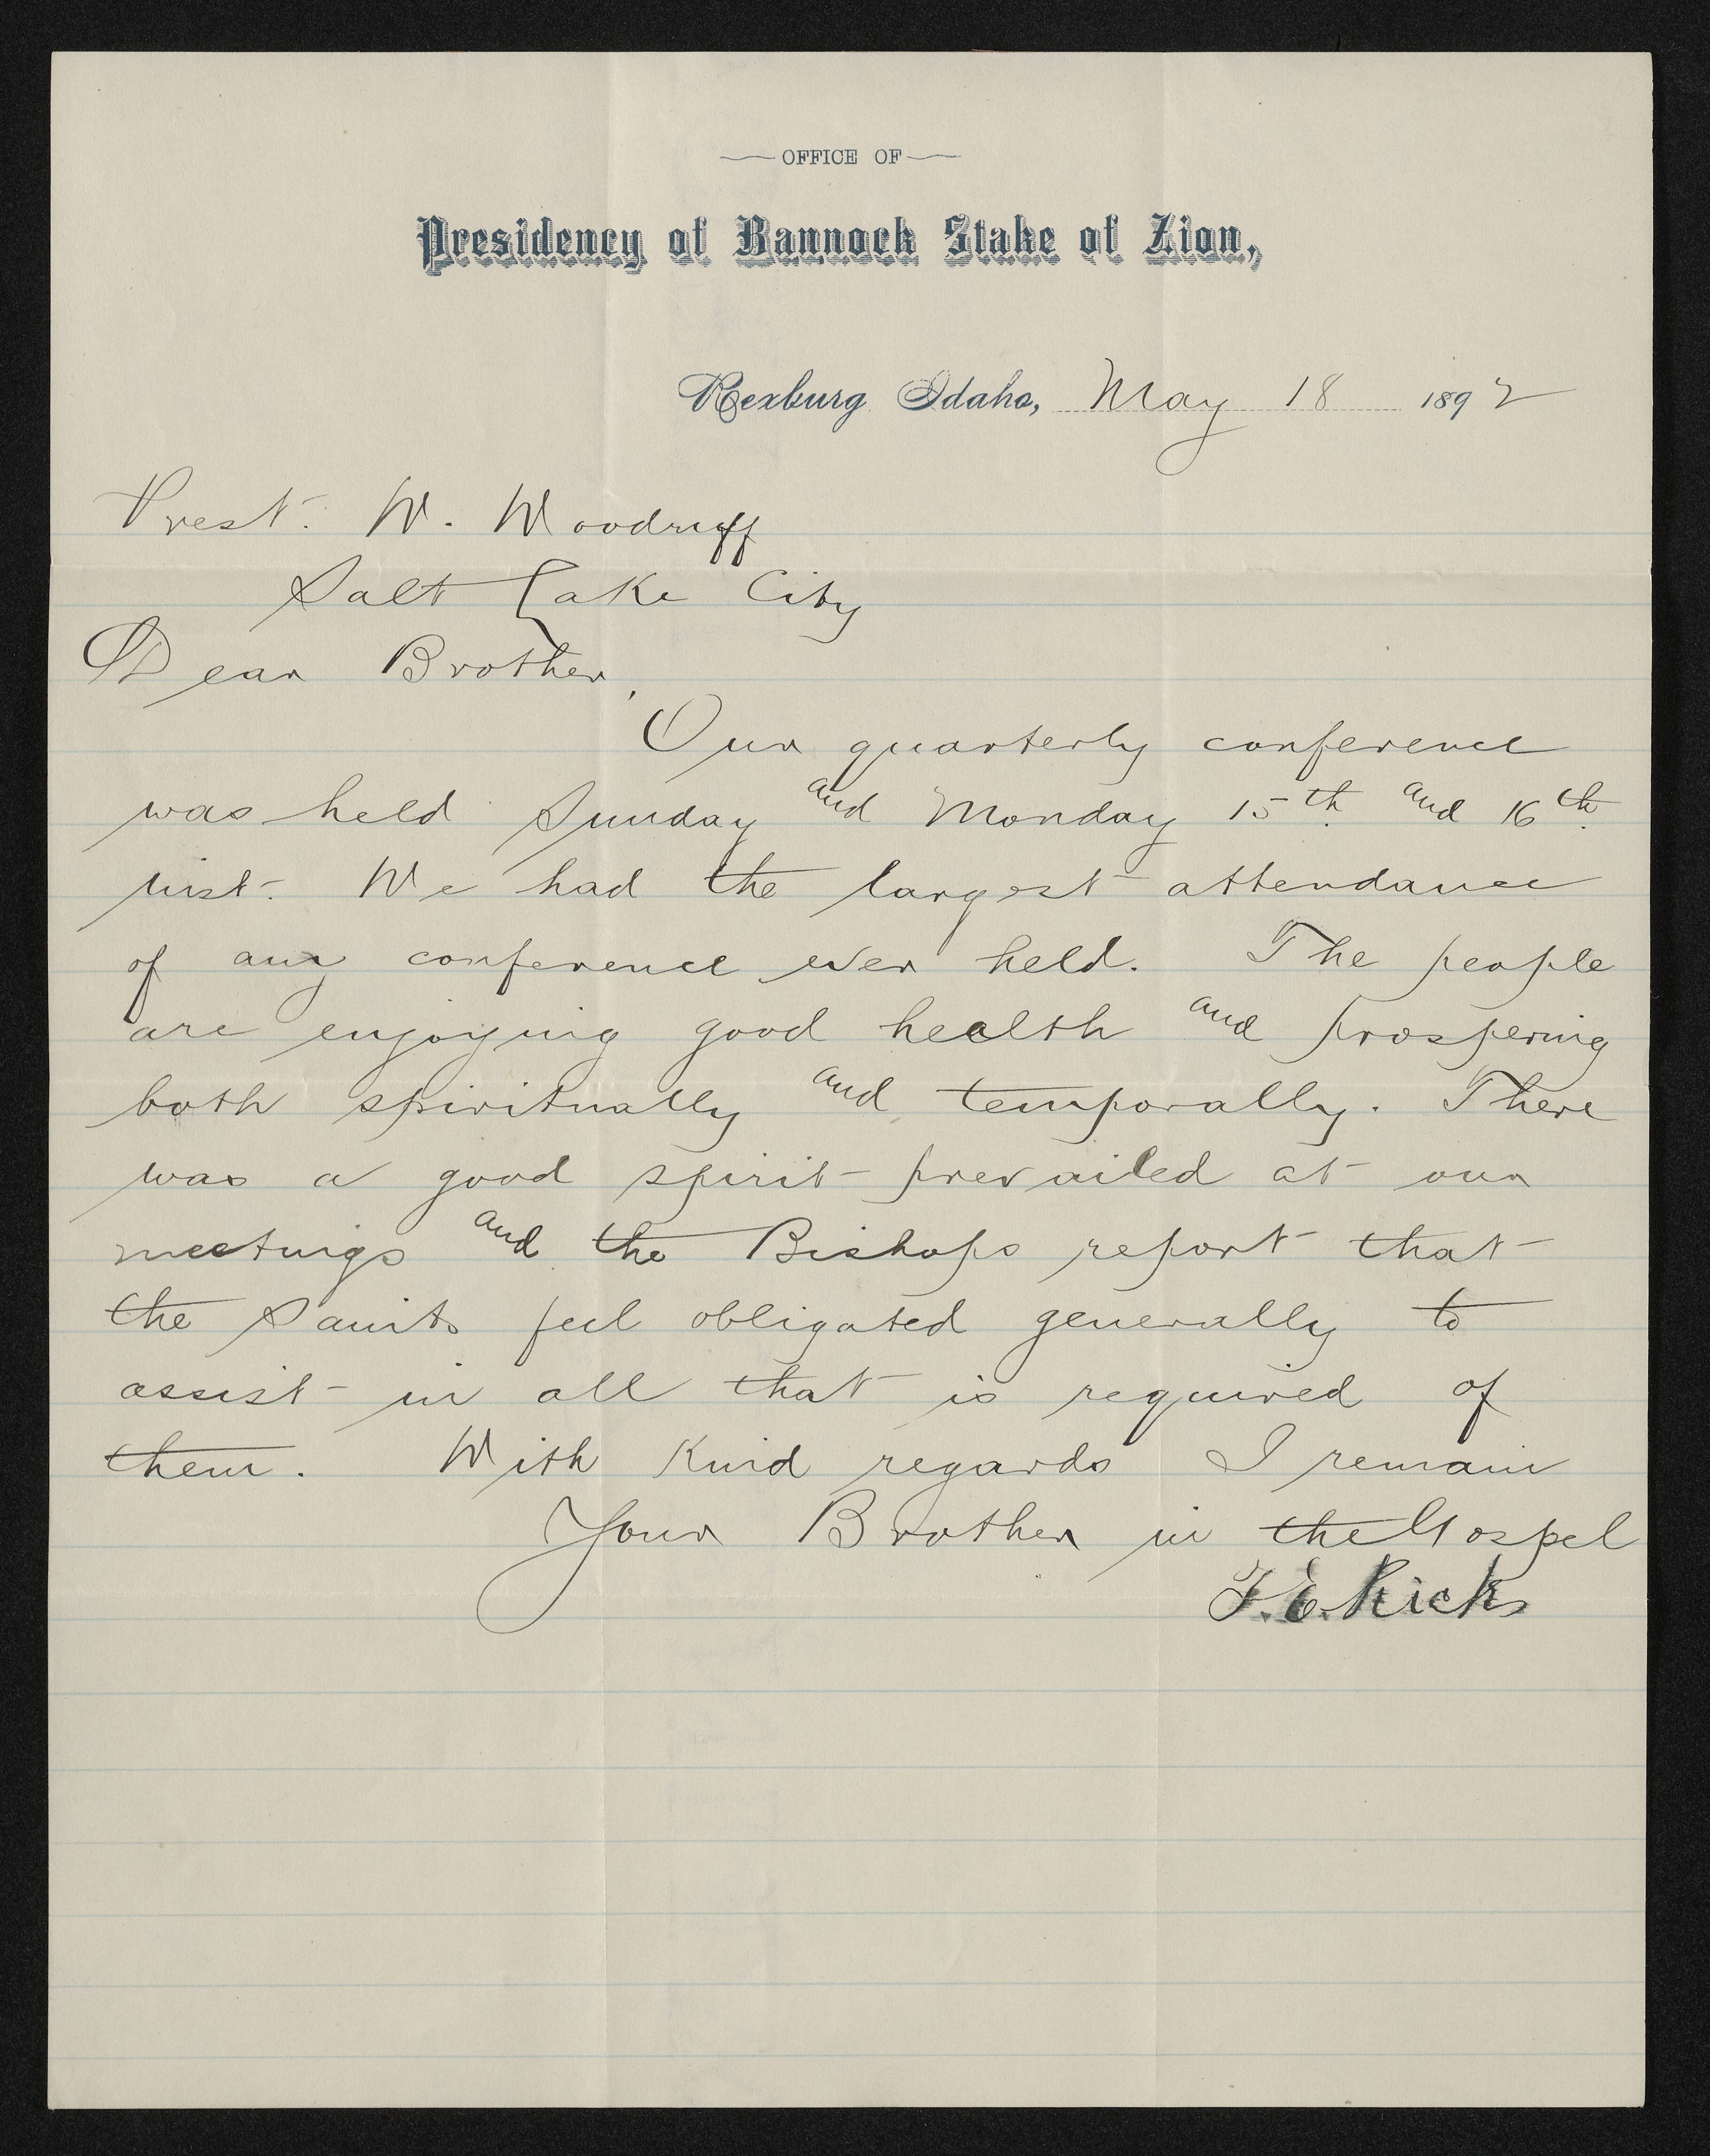 OFFICE OF
Presidency of Bannock Stake of Zion,
Rexburg Idaho, May 18 1892
Prest. W. Woodruff
Salt Lake City
Dear Brother,
Our quarterly conference
was held Sunday and Monday 15th and 16th
inst. We had the largest attendance
of any conference ever held. The people
are enjoying good health and prospering
both spiritually and temporally. There
was a good spirit prevailed at our
meetings and the Bishops report that
the Saints feel obligated generally to
assist in all that is required of
them. With Kind regards I remain
Your Brother in the Gospel
T. E. Ricks